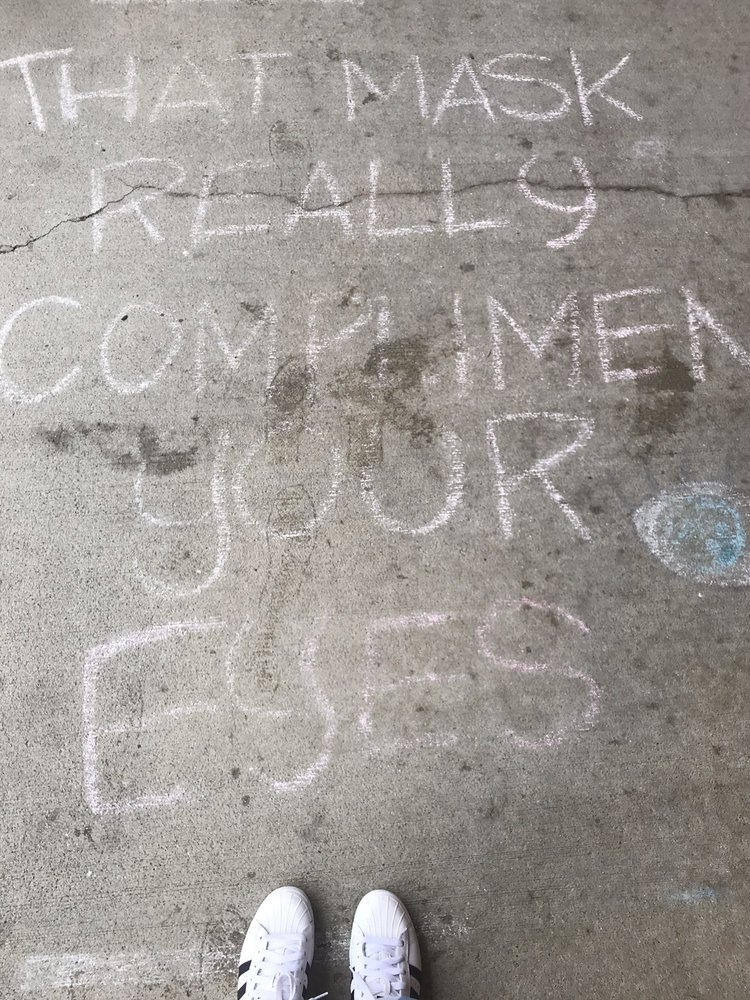 THAT MASK
REALLY
COMPLIMEN
YOUR
EYES